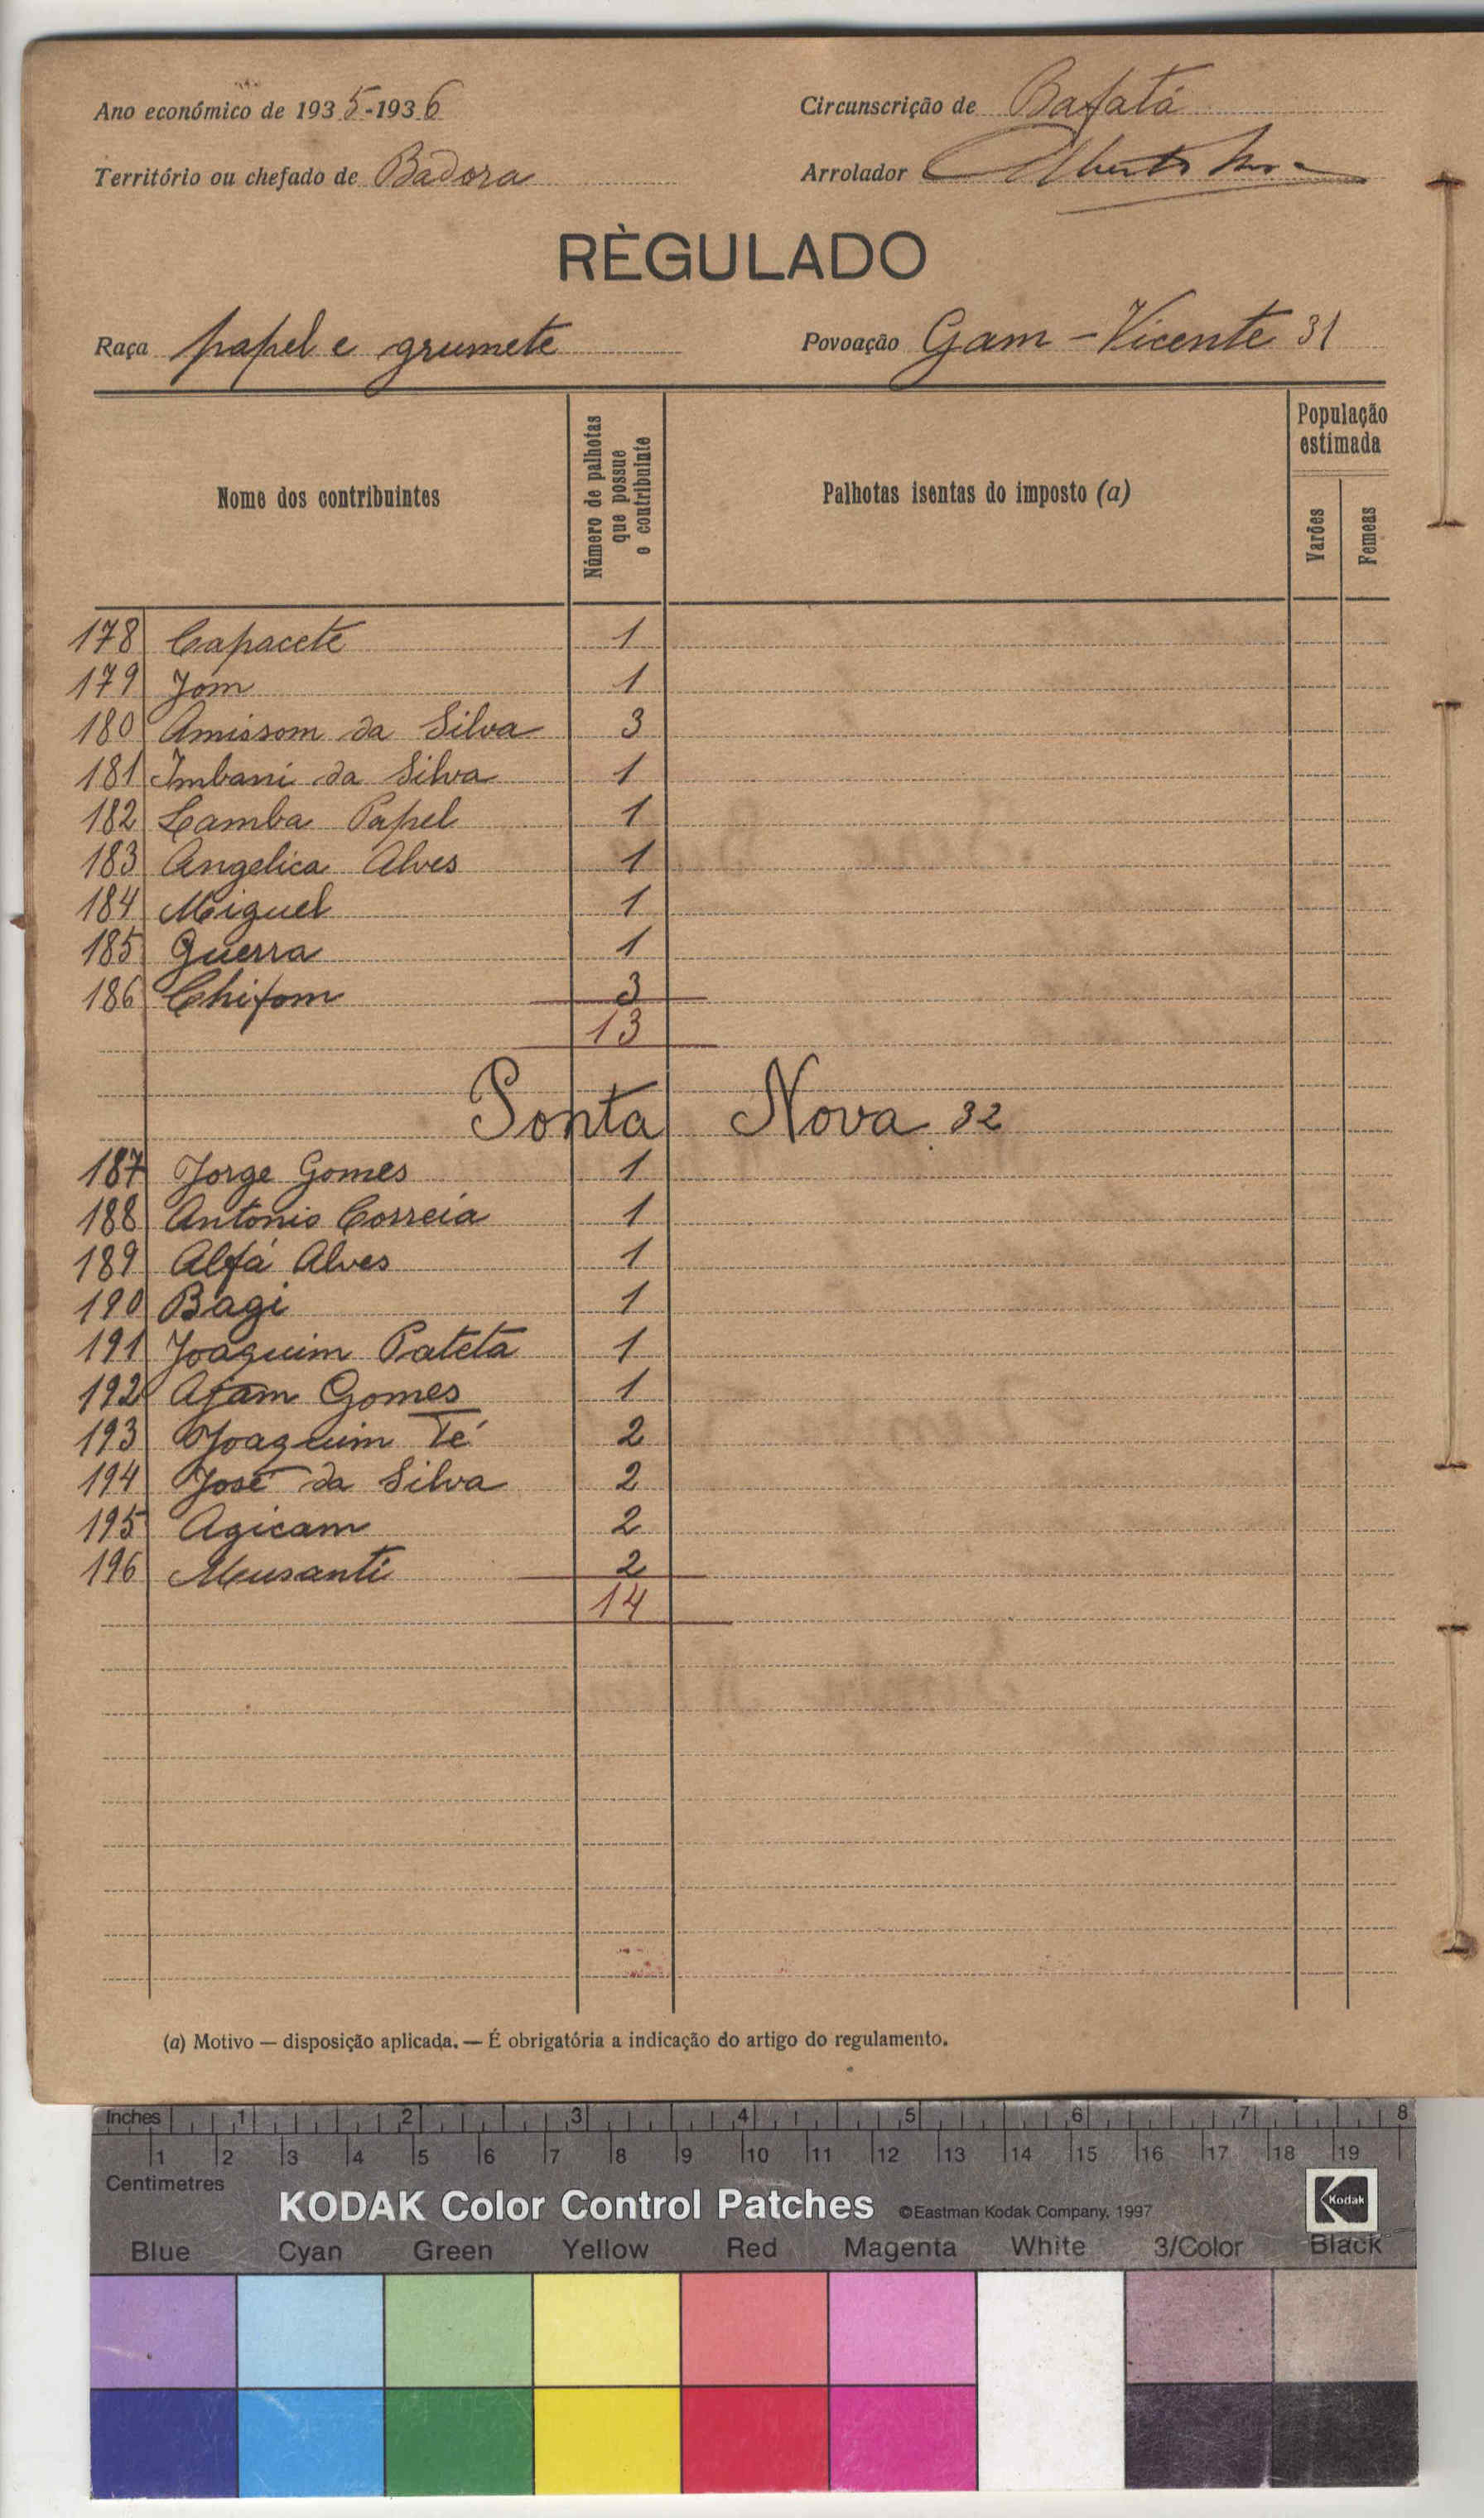 Ano económico de 1935-1936
Circunscrição de Bafatá
Território ou chefado de Badora
Arrolador Alberto
RÈGULADO
Raça papel e grumete
Povoação Gam-Vicente 31
Nome dos contribuintes
Número de palhotas que possue o contribuinte
Palhotas isentas do imposto (a)
População estimada
Varões
Femeas
178 Capacete 1
179 Jom 1
180 Amissom da Silva 3
181 Imbani da Silva 1
182 Lamba Papel 1
183 Angelica Alves 1
184 Miguel 1
185 Guerra 1
186 Chifom 3
13
Ponta Nova 32
187 Jorge Gomes 1
188 Antonio Correia 1
189 Alfá Alves 1
190 Bagi 1
191 Joaquim Pateta 1
192 Afam Gomes 1
193 Joaquim Té 2
194 José da Silva 2
195 Agicam 2
196 Musanti 2
14
(a) Motivo — disposição aplicada. — É obrigatória a indicação do artigo do regulamento.
Inches 1 2 3 4 5 6 7 8
1 2 3 4 5 6 7 8 9 10 11 12 13 14 15 16 17 18 19
Centimetres
KODAK Color Control Patches ©Eastman Kodak Company, 1997 Kodak
Blue Cyan Green Yellow Red Magenta White 3/Color Black